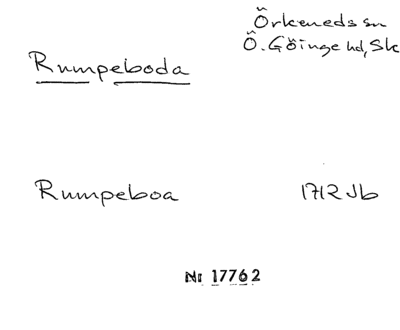 Örkeneds sn
Ö. Göinge hd, Sk
Rumpeboda
Rumpeboa 1712 Jb
Nr 17762